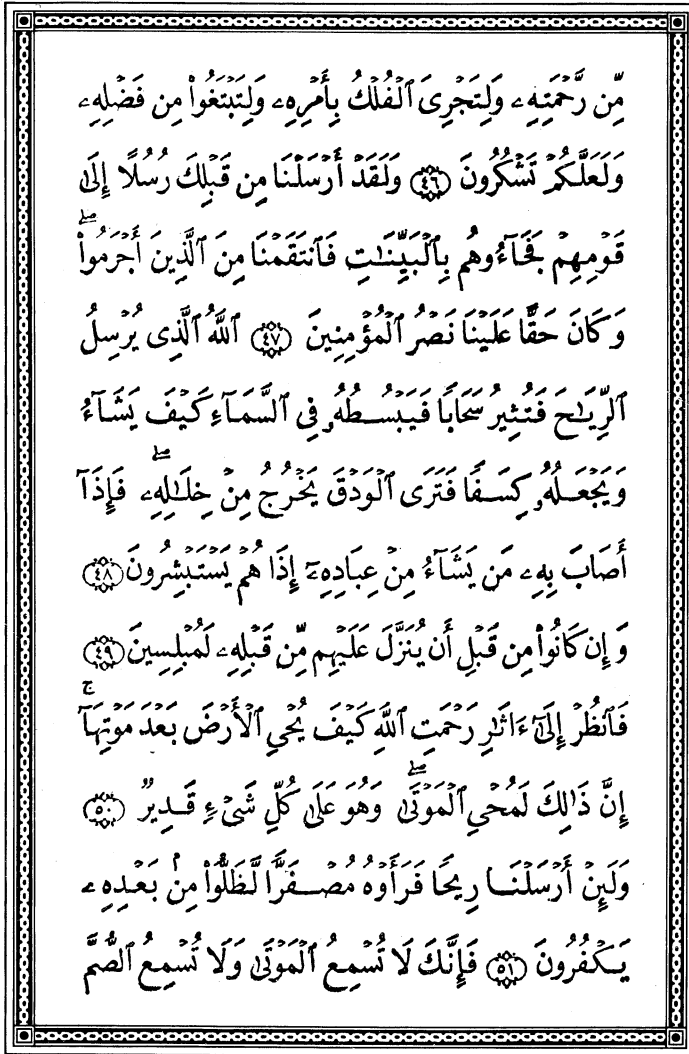 مِّن رَّحْمَتِهِۦ وَلِتَجْرِىَ ٱلْفُلْكُ بِأَمْرِهِۦ وَلِتَبْتَغُوا۟ مِن فَضْلِهِۦ
وَلَعَلَّكُمْ تَشْكُرُونَ ﴿٤٦﴾ وَلَقَدْ أَرْسَلْنَا مِن قَبْلِكَ رُسُلًا إِلَىٰ
قَوْمِهِمْ فَجَآءُوهُم بِٱلْبَيِّنَـٰتِ فَٱنتَقَمْنَا مِنَ ٱلَّذِينَ أَجْرَمُوا۟ ۖ
وَكَانَ حَقًّا عَلَيْنَا نَصْرُ ٱلْمُؤْمِنِينَ ﴿٤٧﴾ ٱللَّهُ ٱلَّذِى يُرْسِلُ
ٱلرِّيَـٰحَ فَتُثِيرُ سَحَابًا فَيَبْسُطُهُۥ فِى ٱلسَّمَآءِ كَيْفَ يَشَآءُ
وَيَجْعَلُهُۥ كِسَفًا فَتَرَى ٱلْوَدْقَ يَخْرُجُ مِنْ خِلَـٰلِهِۦ ۖ فَإِذَآ
أَصَابَ بِهِۦ مَن يَشَآءُ مِنْ عِبَادِهِۦٓ إِذَا هُمْ يَسْتَبْشِرُونَ ﴿٤٨﴾
وَإِن كَانُوا۟ مِن قَبْلِ أَن يُنَزَّلَ عَلَيْهِم مِّن قَبْلِهِۦ لَمُبْلِسِينَ ﴿٤٩﴾
فَٱنظُرْ إِلَىٰٓ ءَاثَـٰرِ رَحْمَتِ ٱللَّهِ كَيْفَ يُحْىِ ٱلْأَرْضَ بَعْدَ مَوْتِهَآ ۚ
إِنَّ ذَٰلِكَ لَمُحْىِ ٱلْمَوْتَىٰ ۖ وَهُوَ عَلَىٰ كُلِّ شَىْءٍ قَدِيرٌ ﴿٥٠﴾
وَلَئِنْ أَرْسَلْنَا رِيحًا فَرَأَوْهُ مُصْفَرًّا لَّظَلُّوا۟ مِنۢ بَعْدِهِۦ
يَكْفُرُونَ ﴿٥١﴾ فَإِنَّكَ لَا تُسْمِعُ ٱلْمَوْتَىٰ وَلَا تُسْمِعُ ٱلصُّمَّ